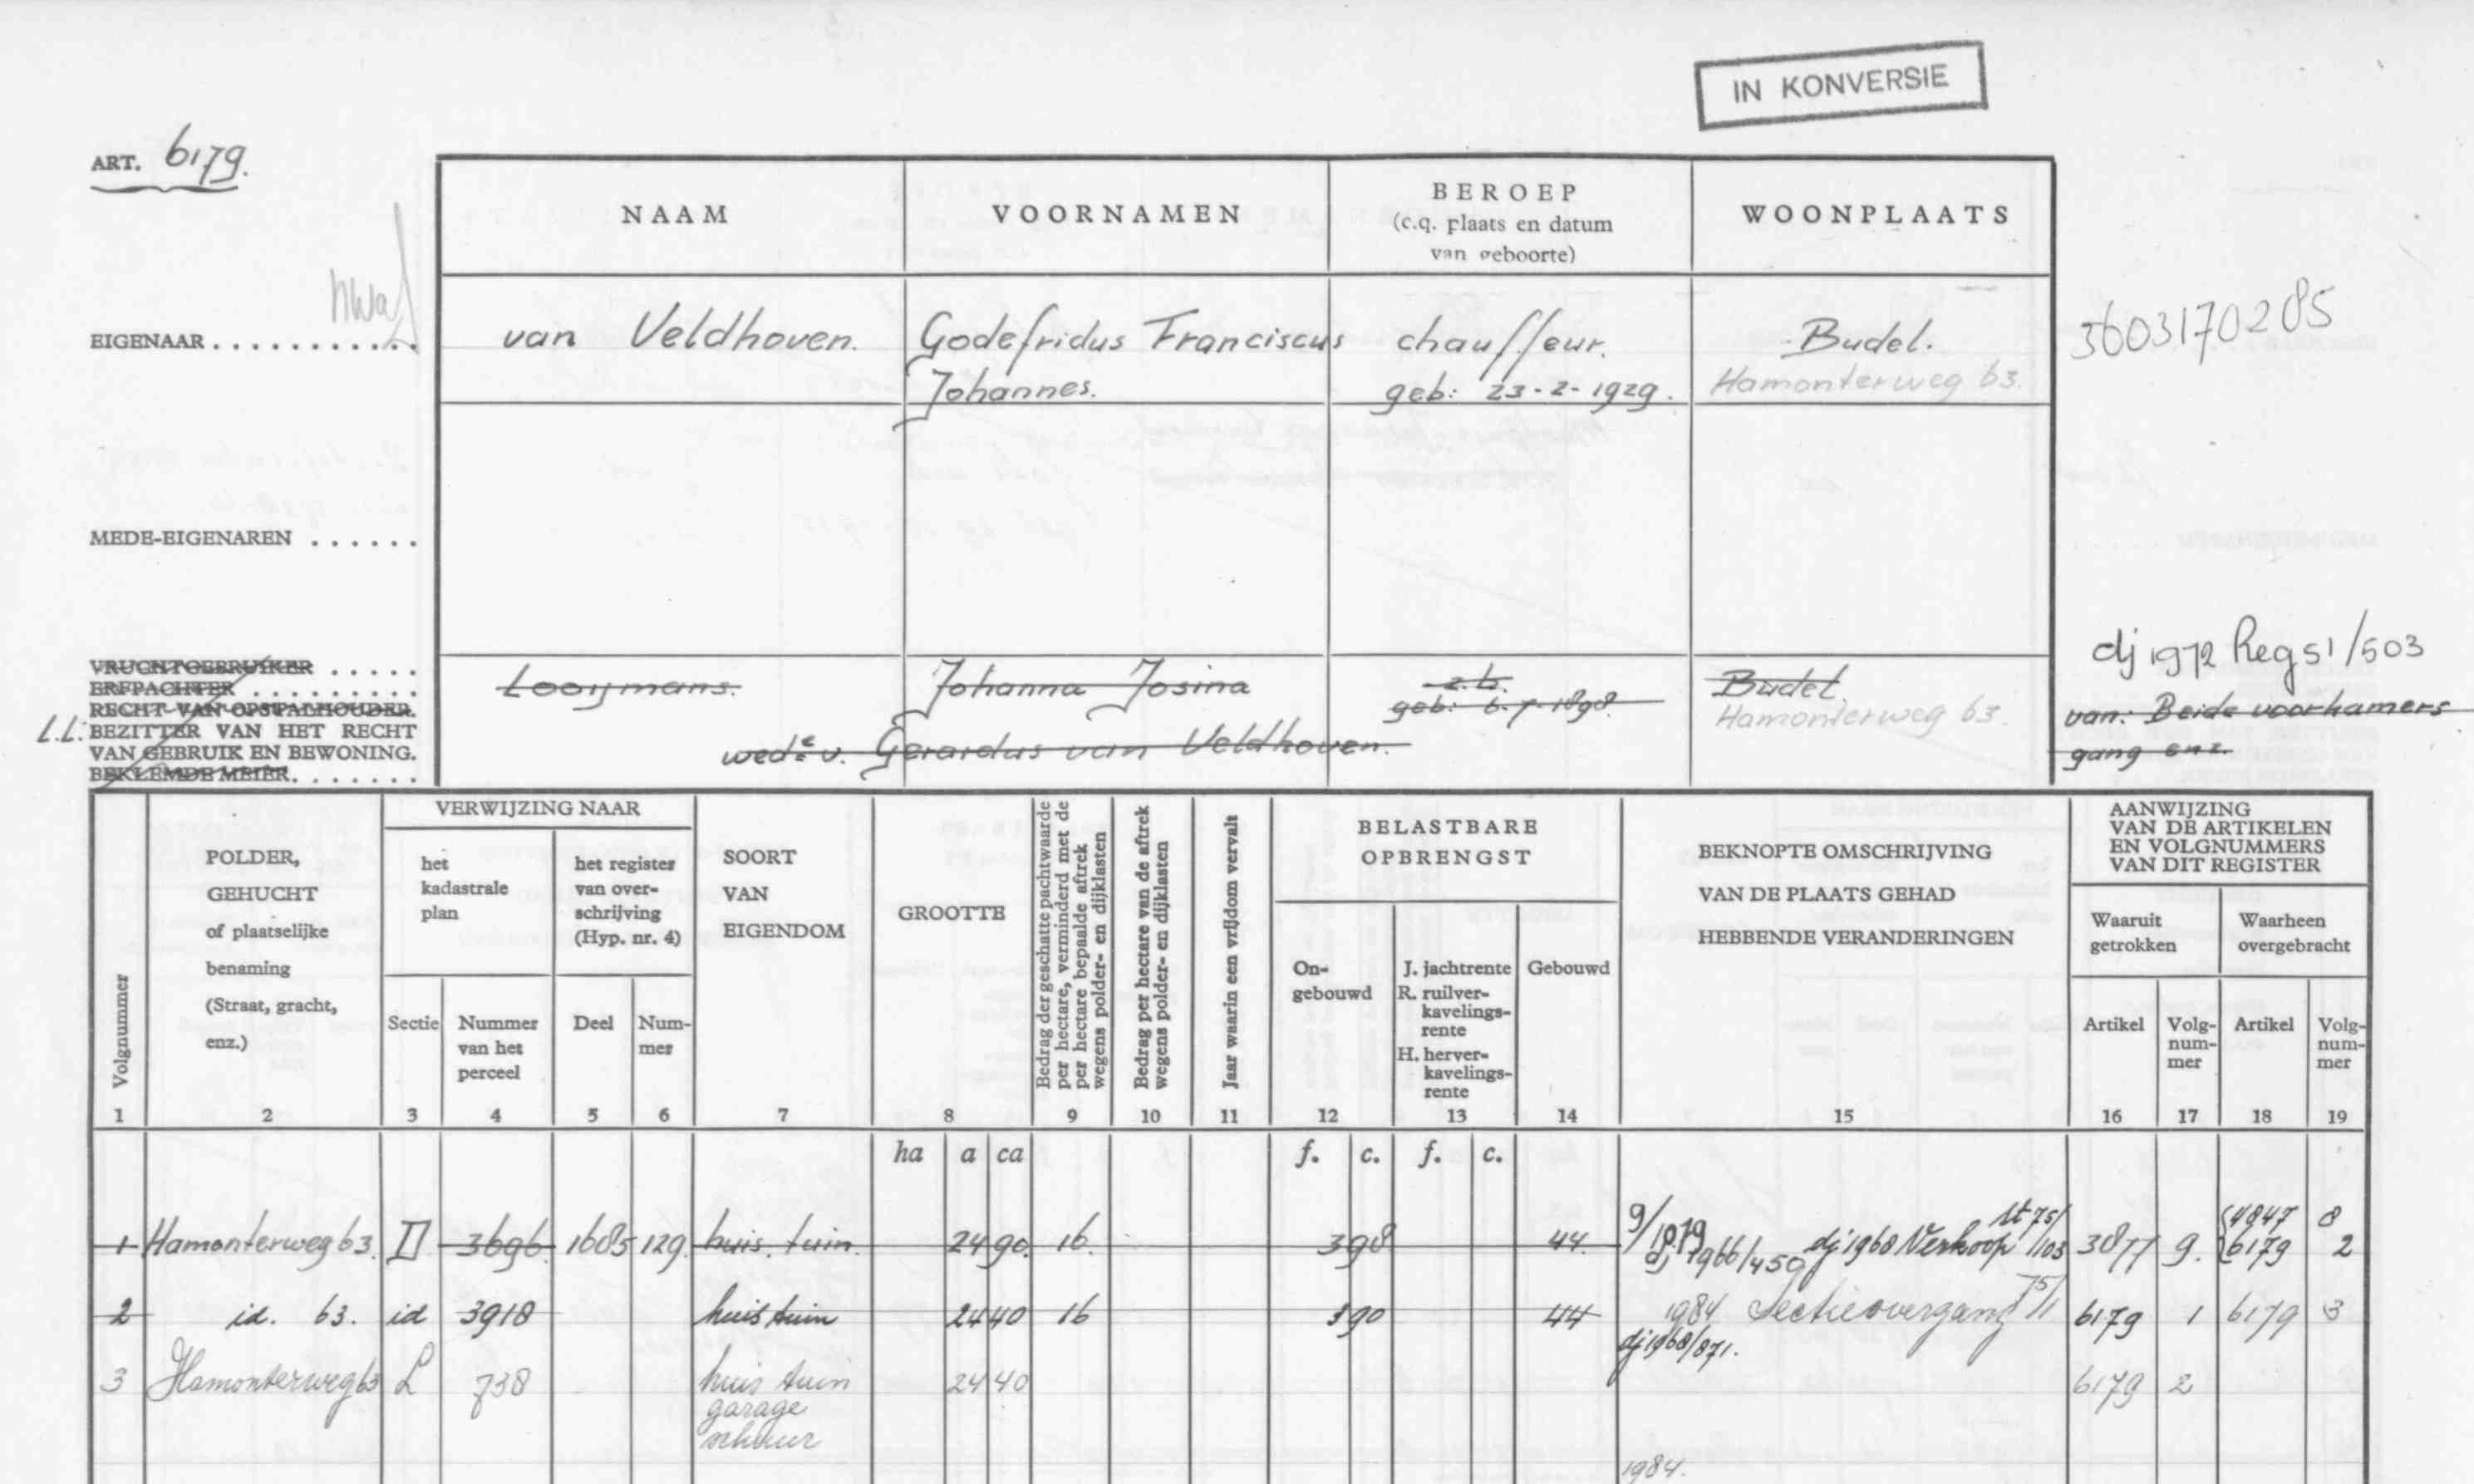 IN KONVERSIE
ART. 6179.
NAAM VOORNAMEN BEROEP (c.q. plaats en datum van geboorte) WOONPLAATS
EIGENAAR . . . . . . . . . . .
van Veldhoven. Godefridus Franciscus chauffeur. Budel. 3603170285
Johannes. geb: 23-2-1929. Hamonterweg 63.
MEDE-EIGENAREN . . . . . .
dj 1972 Reg 51/503
VRUCHTGEBRUIKER . . . . .
ERFPACHTER . . . . . . . . .
RECHT VAN OPSTALHOUDER.
L.L. BEZITTER VAN HET RECHT
VAN GEBRUIK EN BEWONING.
BEKLEMDE MEIER. . . . . . .
Looijmans. Johanna Josina z.b. Budel
geb: 6-7-1898. Hamonterweg 63. van: Beide voorkamers
wede v. Gerardus van Veldhoven. gang enz.
Volgnummer
POLDER,
GEHUCHT
of plaatselijke
benaming
(Straat, gracht,
enz.)
VERWIJZING NAAR
het
kadastrale
plan
Sectie
Nummer
van het
perceel
het register
van over-
schrijving
(Hyp. nr. 4)
Deel
Num-
mer
SOORT
VAN
EIGENDOM
GROOTTE
Bedrag der geschatte pachtwaarde
per hectare, verminderd met de
per hectare bepaalde aftrek
wegens polder- en dijklasten
Bedrag per hectare van de aftrek
wegens polder- en dijklasten
Jaar waarin een vrijdom vervalt
BELASTBARE
OPBRENGST
On-
gebouwd
J. jachtrente
R. ruilver-
kavelings-
rente
H. herver-
kavelings-
rente
Gebouwd
BEKNOPTE OMSCHRIJVING
VAN DE PLAATS GEHAD
HEBBENDE VERANDERINGEN
AANWIJZING
VAN DE ARTIKELEN
EN VOLGNUMMERS
VAN DIT REGISTER
Waaruit
getrokken
Waarheen
overgebracht
Artikel
Volg-
num-
mer
Artikel
Volg-
num-
mer
1 2 3 4 5 6 7 8 9 10 11 12 13 14 15 16 17 18 19
ha a ca f. c. f. c.
1 Hamonterweg 63. D 3696 1685 129. huis. tuin. 24 90. 16. 3 98 44. dj 1966/459 dj 1968 Verkoop 3877 9. 4847 8
6179 2
2 id. 63. id 3918 huis tuin 24 40 16 3 90 44 1984 Sectieovergang 75/1 6179 1 6179 3
dj 1968/871.
3 Hamonterweg 63 L 738 huis tuin 24 40 6179 2
garage
schuur
1984.